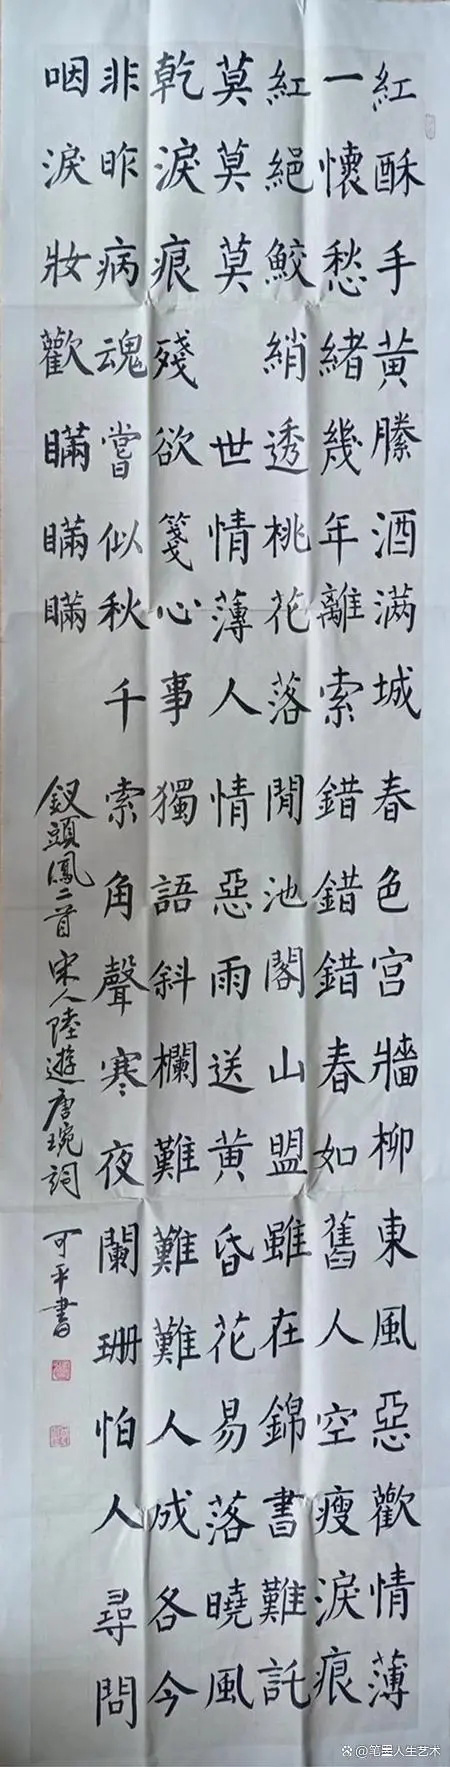 紅酥手黃縢酒满城春色宮牆柳東風惡歡情薄
一懷愁緒幾年離索錯錯錯春如舊人空瘦淚痕
紅絕鮫綃透桃花落閒池閣山盟雖在錦書難託
莫莫莫 世情薄人情惡雨送黃昏花易落曉風
乾淚痕殘欲箋心事獨語斜欄難難難人成各今
非昨病魂嘗似秋千索角聲寒夜闌珊怕人尋問
咽淚妝歡瞞瞞瞞
釵頭鳳二首 宋人陸遊唐琬詞 可平書
@笔墨人生艺术